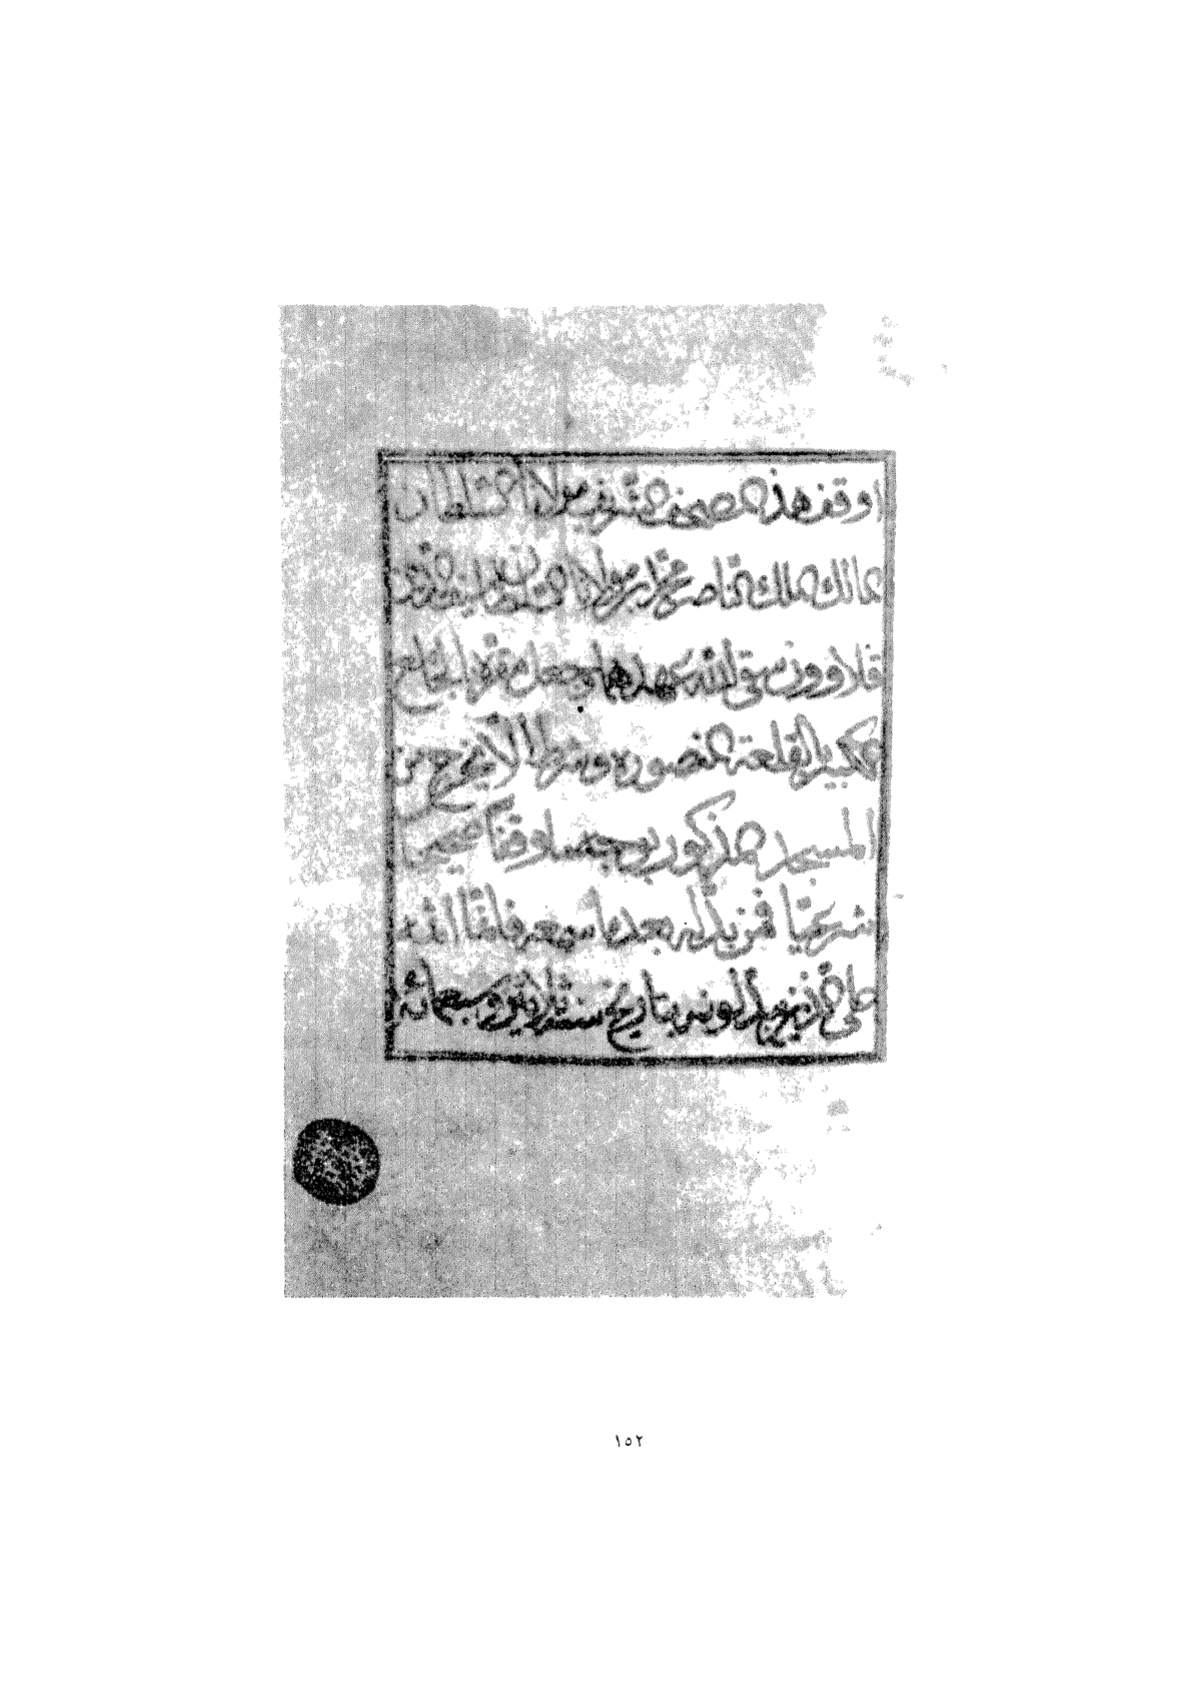 اوقف هذا المصحف الشريف مولانا السلطان
المالك الملك الناصر محمد ابن مولانا السلطان
قلاوون سقى الله عهدهما وجعل مقره بالجامع
الكبير بالقلعة المنصورة وشرط الا يخرج من
المسجد المذكور بوجه وقفا صحيحا
شرعيا فمن بدله بعد ما سمعه فانما اثمه
على الذين يبدلونه بتاريخ سنة ثلاثين وسبعمائة
١٥٢